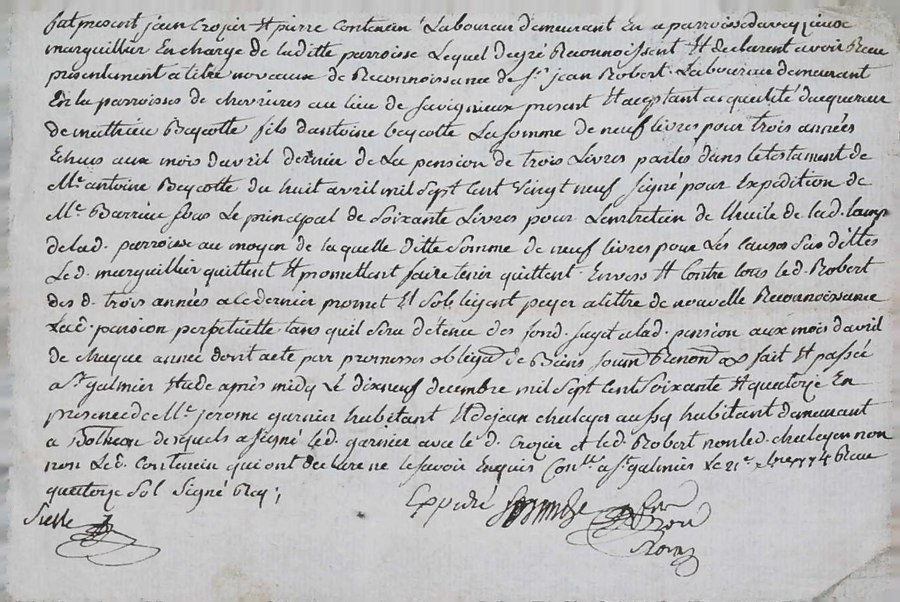 fut present jean Crozier et pierre Contenein Laboureur demeurant En a parroisse
marguillier En charge de laditte parroisse Lequel de gré Reconnoissent et declarent avoir Receu
presentement a titre noveaux de Reconnoissance de Sr. jean Robert Laboureur demeurant
En la parroisses de chevrieres au lieu de Savignieux present et aceptant a quallité dacquereur
de mathieu Beycotte fils dantoine beycotte La somme de neuf livres pour trois années
Echues aux mois davril dernier de La pension de trois Livres portés dans le testament de
Me. antoine Beycotte du huit avril mil Sept Cent Vingt neuf Signé pour Expedition de
Me. Barrieu sous Le principal de Soixante Livres pour Lentretein de Lhuile de lad. lamp
de lad. parroisse au moyen de laquelle ditte Somme de neuf livres pour Les causes Sus dittes
Le d. marguillier quittent et promettent faire tenir quittent Envers et Contre tous led. Robert
des d. trois années a le dernier promet et Sobligent peyer a tittre de nouvelle Reconnoissance
La d. pension perpetuelle tans quil Sera détenc des fond. Sujet a lad. pension aux mois davril
de chaque année dont acte par promesses obligã de Biens Soum Renonã &a fait et passée
a St. galmier Etude apres midy Le dixneuf decembre mil Sept Cent Soixante et quatorze En
presence de Mr. jerome garnier habitant et de jean chalayer aussy habitant demeurant
a Botheon desquels a signé led. garnier avec le d. Crozier et led. Robert non led. chalayer non
non Le d. Contenein qui ont declaré ne le savoir Enquis Conllé a St. galmier Le 21e Xbre 1774 Receu
quatorze Sol Signé Rey;
Expedié